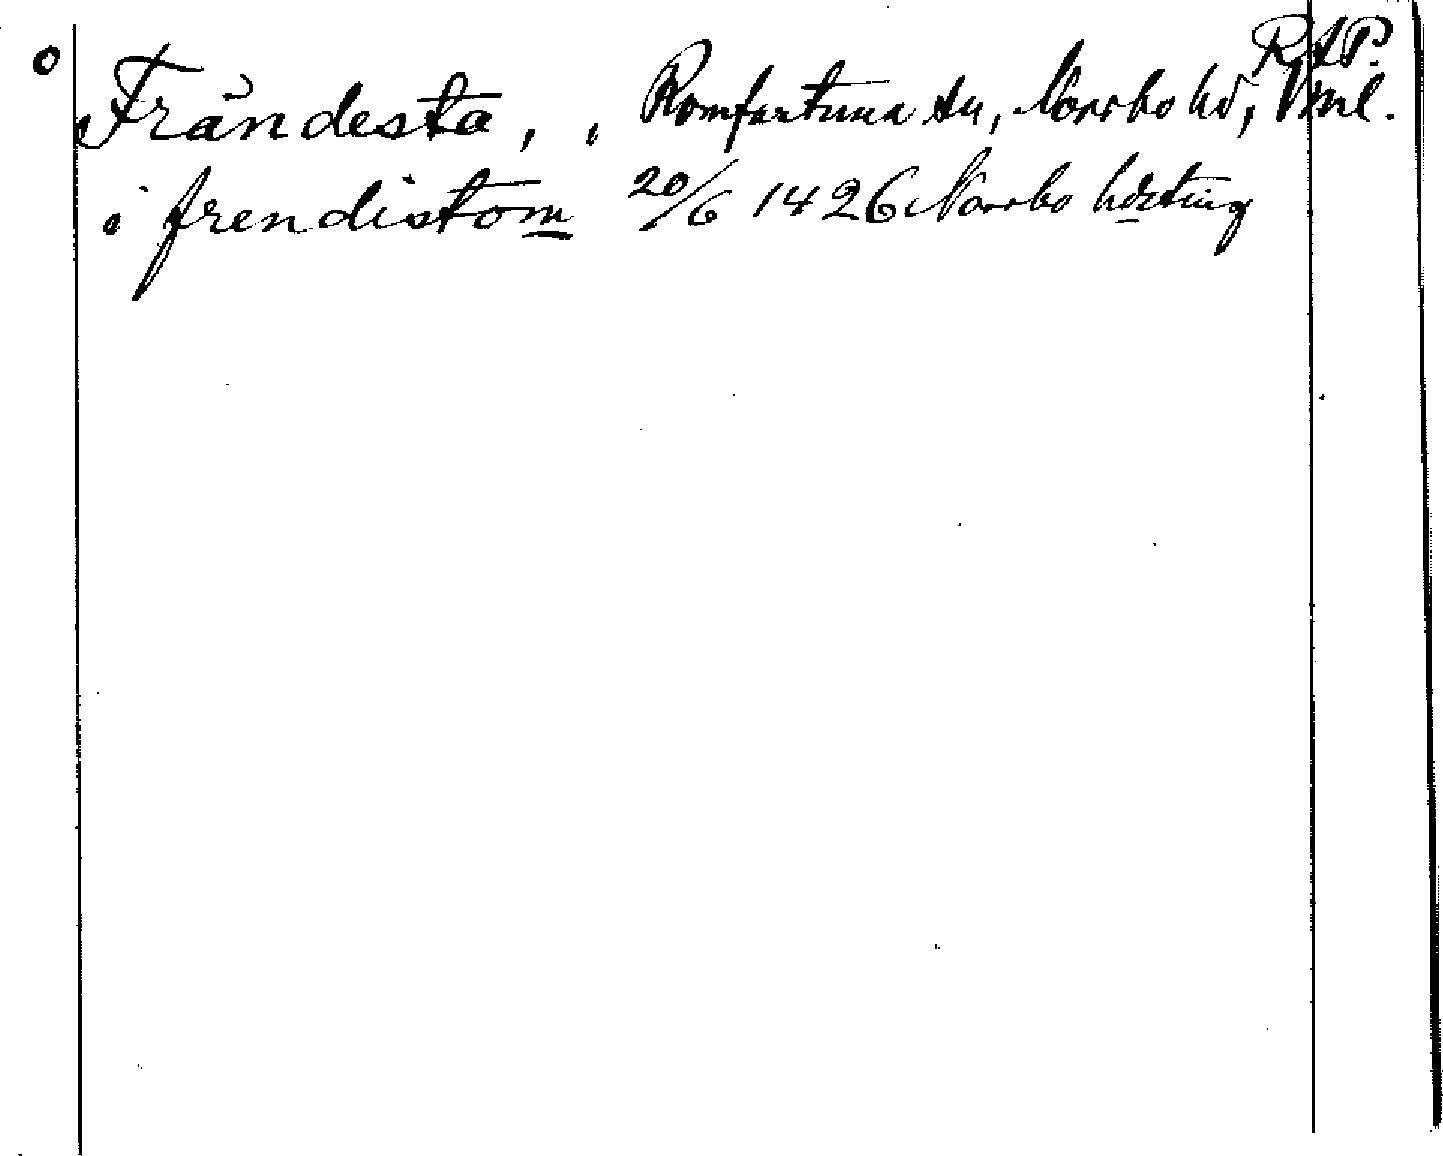 RAP.
o Frändesta, , Romfartuna sn, Norrbo hd, Vml.
i frendistom 20/6 1426 Norrbo hdsting